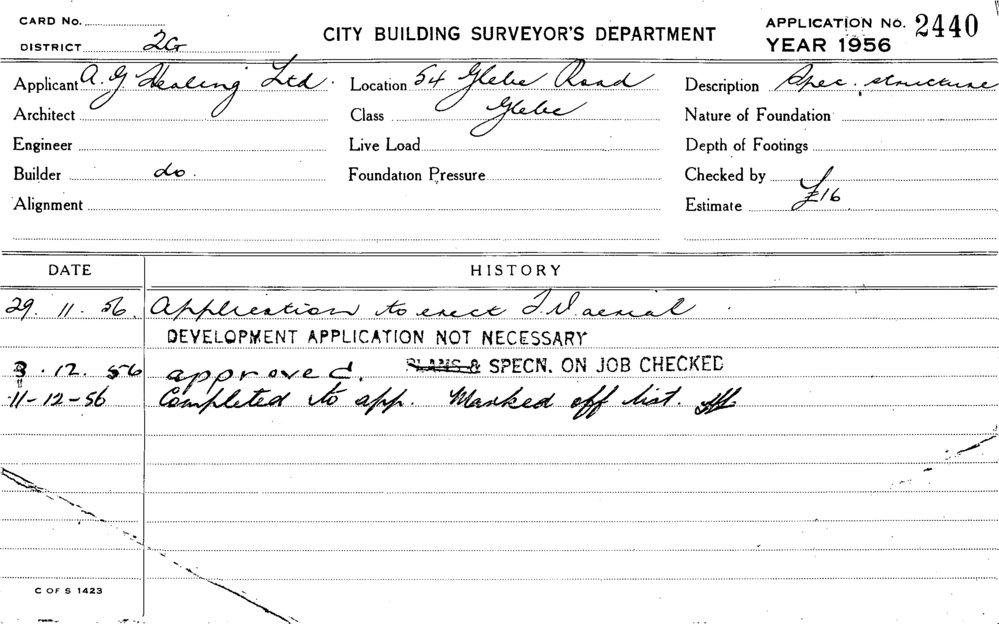 CARD No.
DISTRICT 2G
CITY BUILDING SURVEYOR'S DEPARTMENT
APPLICATION No. 2440
YEAR 1956
Applicant A. G Healing Ltd. Location 54 Glebe Road Description Spec. structure
Architect Class Glebe Nature of Foundation
Engineer Live Load Depth of Footings
Builder do. Foundation Pressure Checked by
Alignment Estimate £16
DATE HISTORY
29. 11. 56. Application to erect T.V. aerial.
DEVELOPMENT APPLICATION NOT NECESSARY
3. 12. 56 approved. PLANS & SPECN. ON JOB CHECKED
11-12-56 Completed to app. Marked off list.
C OF S 1423